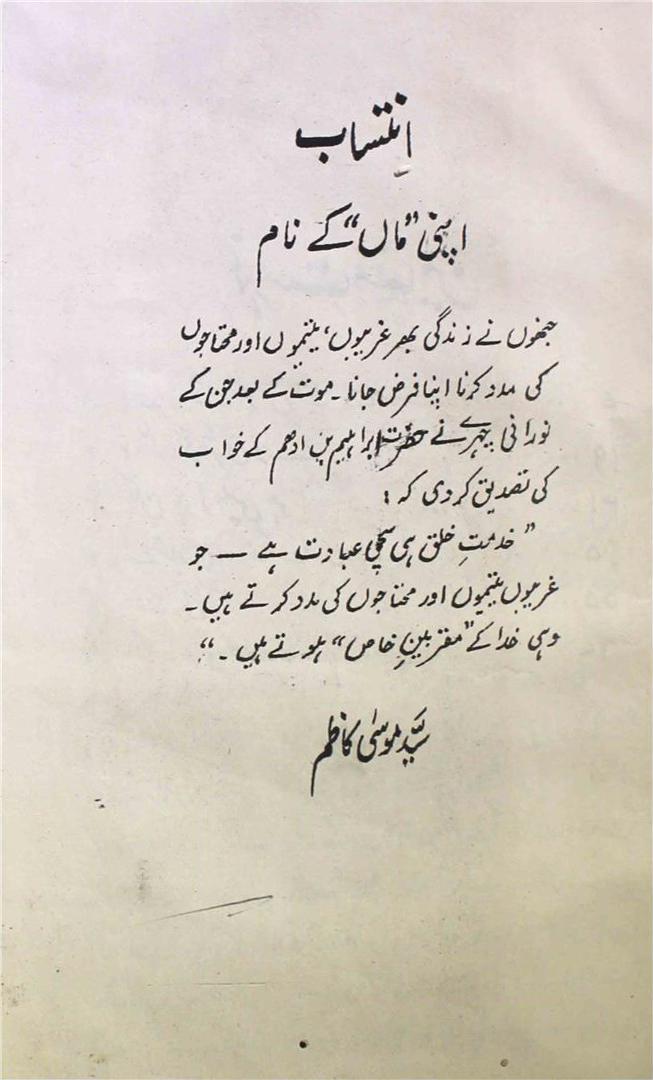 اِنتساب
اپنی "ماں" کے نام
جنھوں نے زندگی بھر غریبوں، یتیموں اور محتاجوں
کی مدد کرنا اپنا فرض جانا۔ موت کے بعد جن کے
نورانی چہرے نے حضرت ابراہیم بن ادھم کے خواب
کی تصدیق کردی کہ :
"خدمتِ خلق ہی سچی عبادت ہے — جو
غریبوں یتیموں اور محتاجوں کی مدد کرتے ہیں۔
وہی خدا کے "مقربینِ خاص" ہوتے ہیں۔"
سیّد موسیٰ کاظم